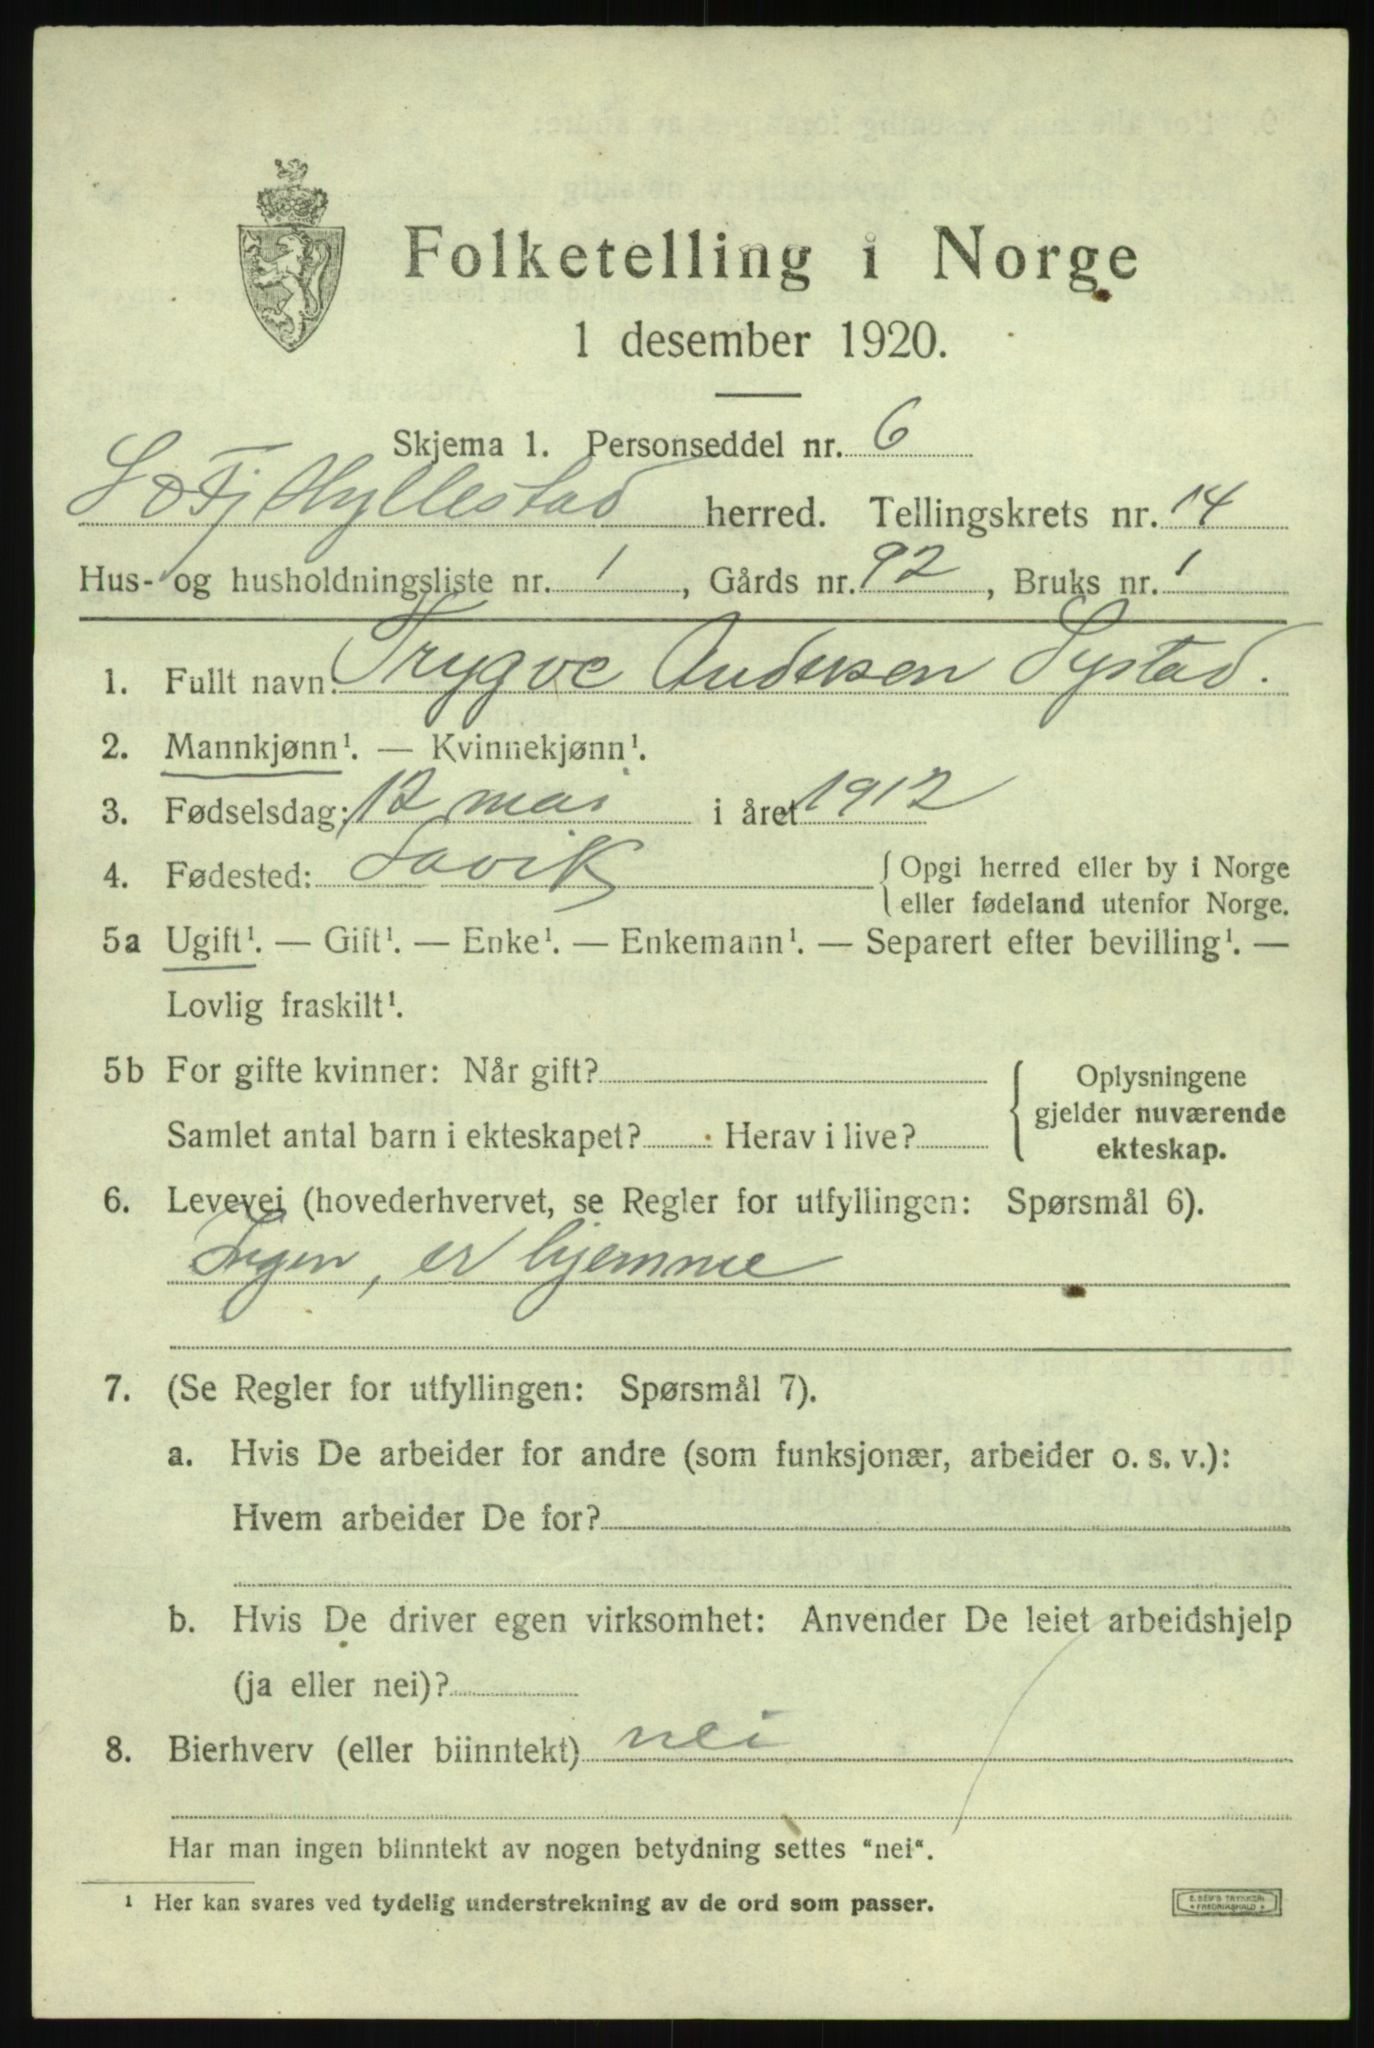 Folketelling i Norge
1 desember 1920.
Skjema 1. Personseddel nr. 6
S & Fj Hyllestad herred. Tellingskrets nr. 14
Hus- og husholdningsliste nr. 1, Gårds nr. 92, Bruks nr. 1
1. Fullt navn: Trygve Andersen Systad.
2. Mannkjønn¹. — Kvinnekjønn¹.
3. Fødselsdag: 12 mai i året 1912
4. Fødested: Lavik { Opgi herred eller by i Norge
eller fødeland utenfor Norge.
5a Ugift¹. — Gift¹. — Enke¹. — Enkemann¹. — Separert efter bevilling¹. —
Lovlig fraskilt¹.
5b For gifte kvinner: Når gift? { Oplysningene
gjelder nuværende
Samlet antal barn i ekteskapet? Herav i live?
ekteskap.
6. Levevei (hovederhvervet, se Regler for utfyllingen: Spørsmål 6).
Ingen, er hjemme
7. (Se Regler for utfyllingen: Spørsmål 7).
a. Hvis De arbeider for andre (som funksjonær, arbeider o. s. v.):
Hvem arbeider De for?
b. Hvis De driver egen virksomhet: Anvender De leiet arbeidshjelp
(ja eller nei)?
8. Bierhverv (eller biinntekt) nei
Har man ingen biinntekt av nogen betydning settes “nei“.
¹ Her kan svares ved tydelig understrekning av de ord som passer.
E. SEM'S TRYKKERI
FREDRIKSHALD